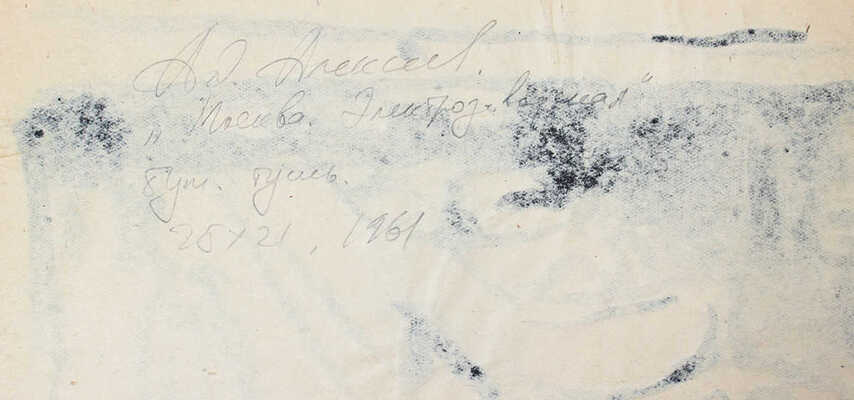 Ад. Алексеев.
„Москва. Электрозаводская"
бум. тушь.
28х21, 1961